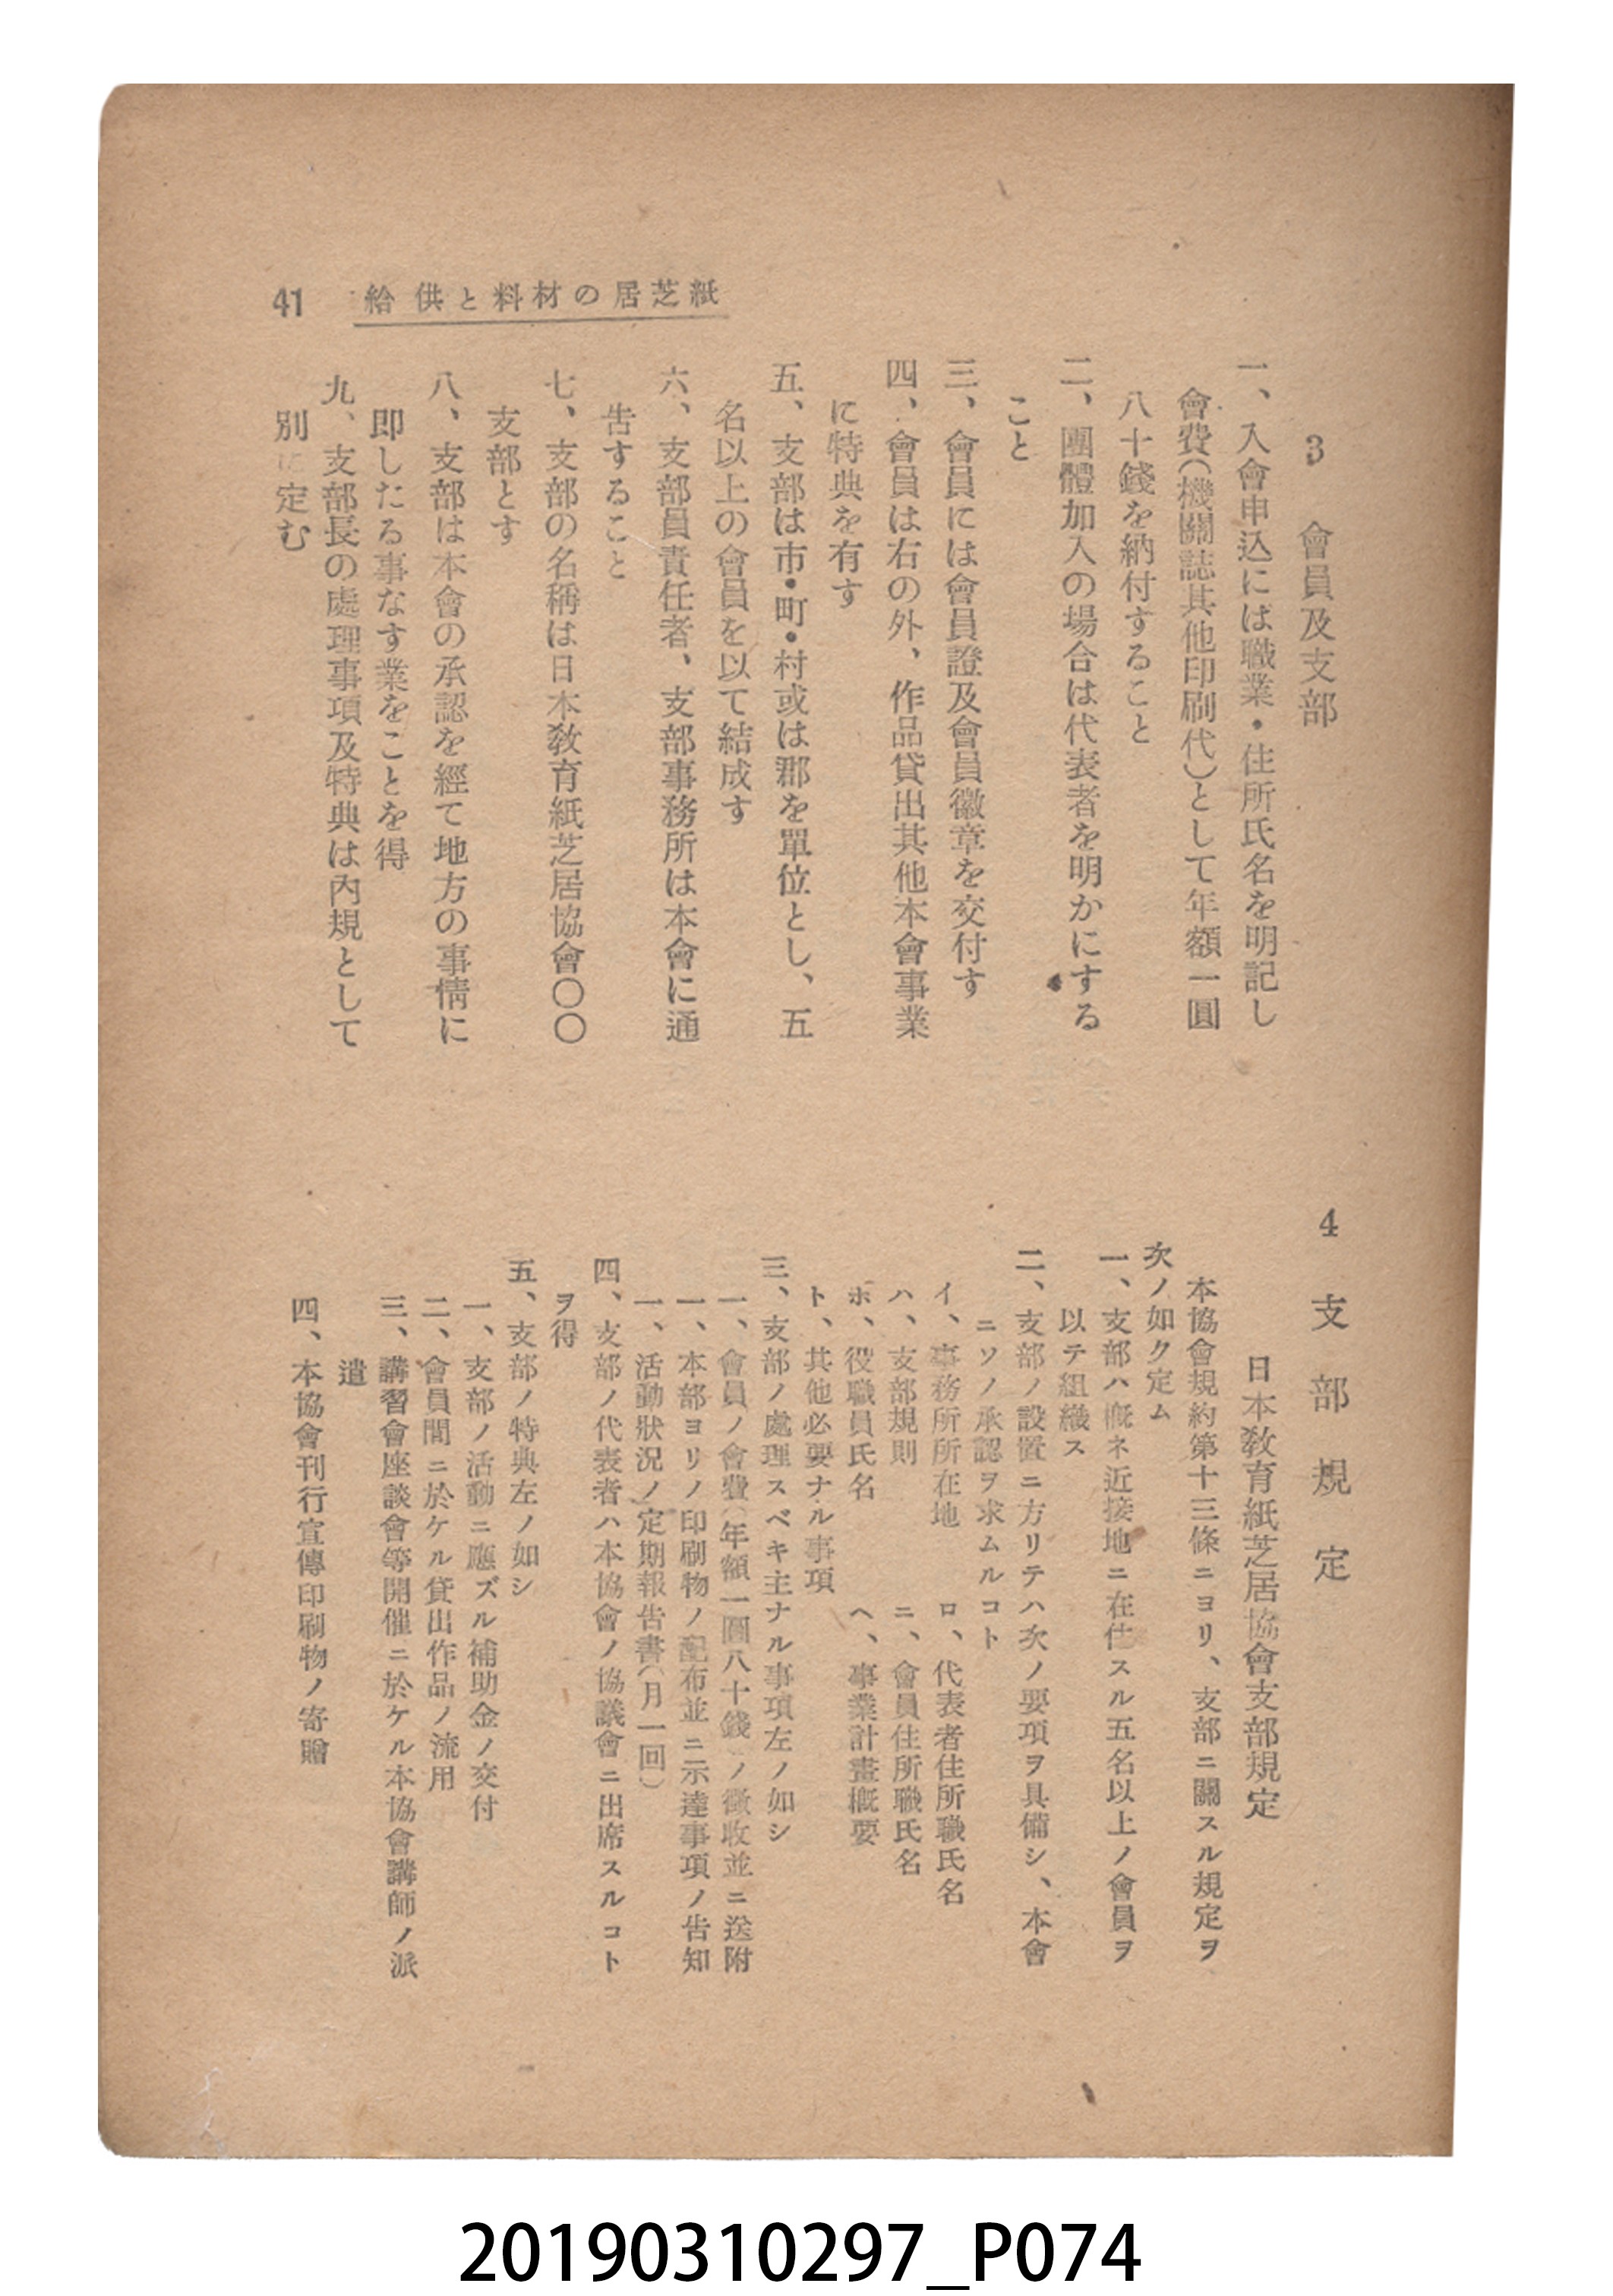 41
給供と料材の居芝紙
3 會員及支部
一、入會申込には職業・住所氏名を明記し
會費(機關誌其他印刷代)として年額一圓
八十錢を納付すること
二、團體加入の場合は代表者を明かにする
こと
三、會員には會員證及會員徽章を交付す
四、會員は右の外、作品貸出其他本會事業
に特典を有す
五、支部は市・町・村或は郡を單位とし、五
名以上の會員を以て結成す
六、支部員責任者、支部事務所は本會に通
告すること
七、支部の名稱は日本敎育紙芝居協會〇〇
支部とす
八、支部は本會の承認を經て地方の事情に
即したる事なす業をことを得
九、支部長の處理事項及特典は內規として
別に定む
4 支部規定
日本敎育紙芝居協會支部規定
本協會規約第十三條ニヨリ、支部ニ關スル規定ヲ
次ノ如ク定ム
一、支部ハ槪ネ近接地ニ在住スル五名以上ノ會員ヲ
以テ組織ス
二、支部ノ設置ニ方リテハ次ノ要項ヲ具備シ、本會
ニソノ承認ヲ求ムルコト
イ、事務所所在地 ロ、代表者住所職氏名
ハ、支部規則 ニ、會員住所職氏名
ホ、役職員氏名 ヘ、事業計畫槪要
ト、其他必要ナル事項
三、支部ノ處理スベキ主ナル事項左ノ如シ
一、會員ノ會費(年額一圓八十錢)ノ徵收並ニ送附
一、本部ヨリノ印刷物ノ配布並ニ示達事項ノ告知
一、活動狀況ノ定期報告書(月一回)
四、支部ノ代表者ハ本協會ノ協議會ニ出席スルコト
ヲ得
五、支部ノ特典左ノ如シ
一、支部ノ活動ニ應ズル補助金ノ交付
二、會員間ニ於ケル貸出作品ノ流用
三、講習會座談會等開催ニ於ケル本協會講師ノ派
遣
四、本協會刊行宣傳印刷物ノ寄贈
20190310297_P074